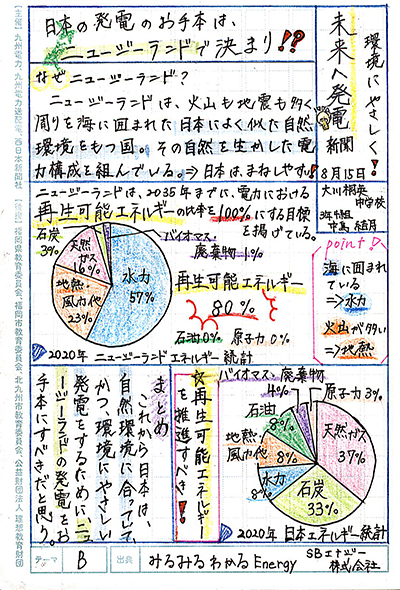 日本の発電のお手本は、
ニュージーランドで決まり!?
環境にやさしく!
未来へ発電
新聞
8月15日
中学校
3年
なぜニュージーランド?
ニュージーランドは、火山も地震も多く
周りを海に囲まれた日本によく似た自然
環境をもつ国。その自然を生かした電
力構成を組んでいる。⇒日本はまねしやすい!
ニュージーランドは、2035年までに、電力における
再生可能エネルギーの比率を100%にする目標
を掲げている。
石炭
3%
天然
ガス
16%
地熱・
風力他
23%
水力
57%
バイオマス・
廃棄物 1%
再生可能エネルギー
80%
石油0% 原子力0%
2020年 ニュージーランドエネルギー統計
point!
海に囲まれ
ている
⇒水力
火山が多い
⇒地熱
☆再生可能エネルギー
を推進すべき!
まとめ
これから日本は、
自然環境に合っていて、
かつ、環境にやさしい
発電をするために、ニュ
ージーランドの発電をお
手本にすべきだと思う。
バイオマス・廃棄物
4%
原子力3%
石油
8%
地熱・
風力他
8%
水力
8%
天然ガス
37%
石炭
33%
2020年 日本エネルギー統計
テーマ
B
出典
みるみるわかるEnergy
SBエナジー
株式会社
【主催】九州電力、九州電力送配電、西日本新聞社
【後援】福岡県教育委員会、福岡市教育委員会、北九州市教育委員会、公益財団法人 理想教育財団